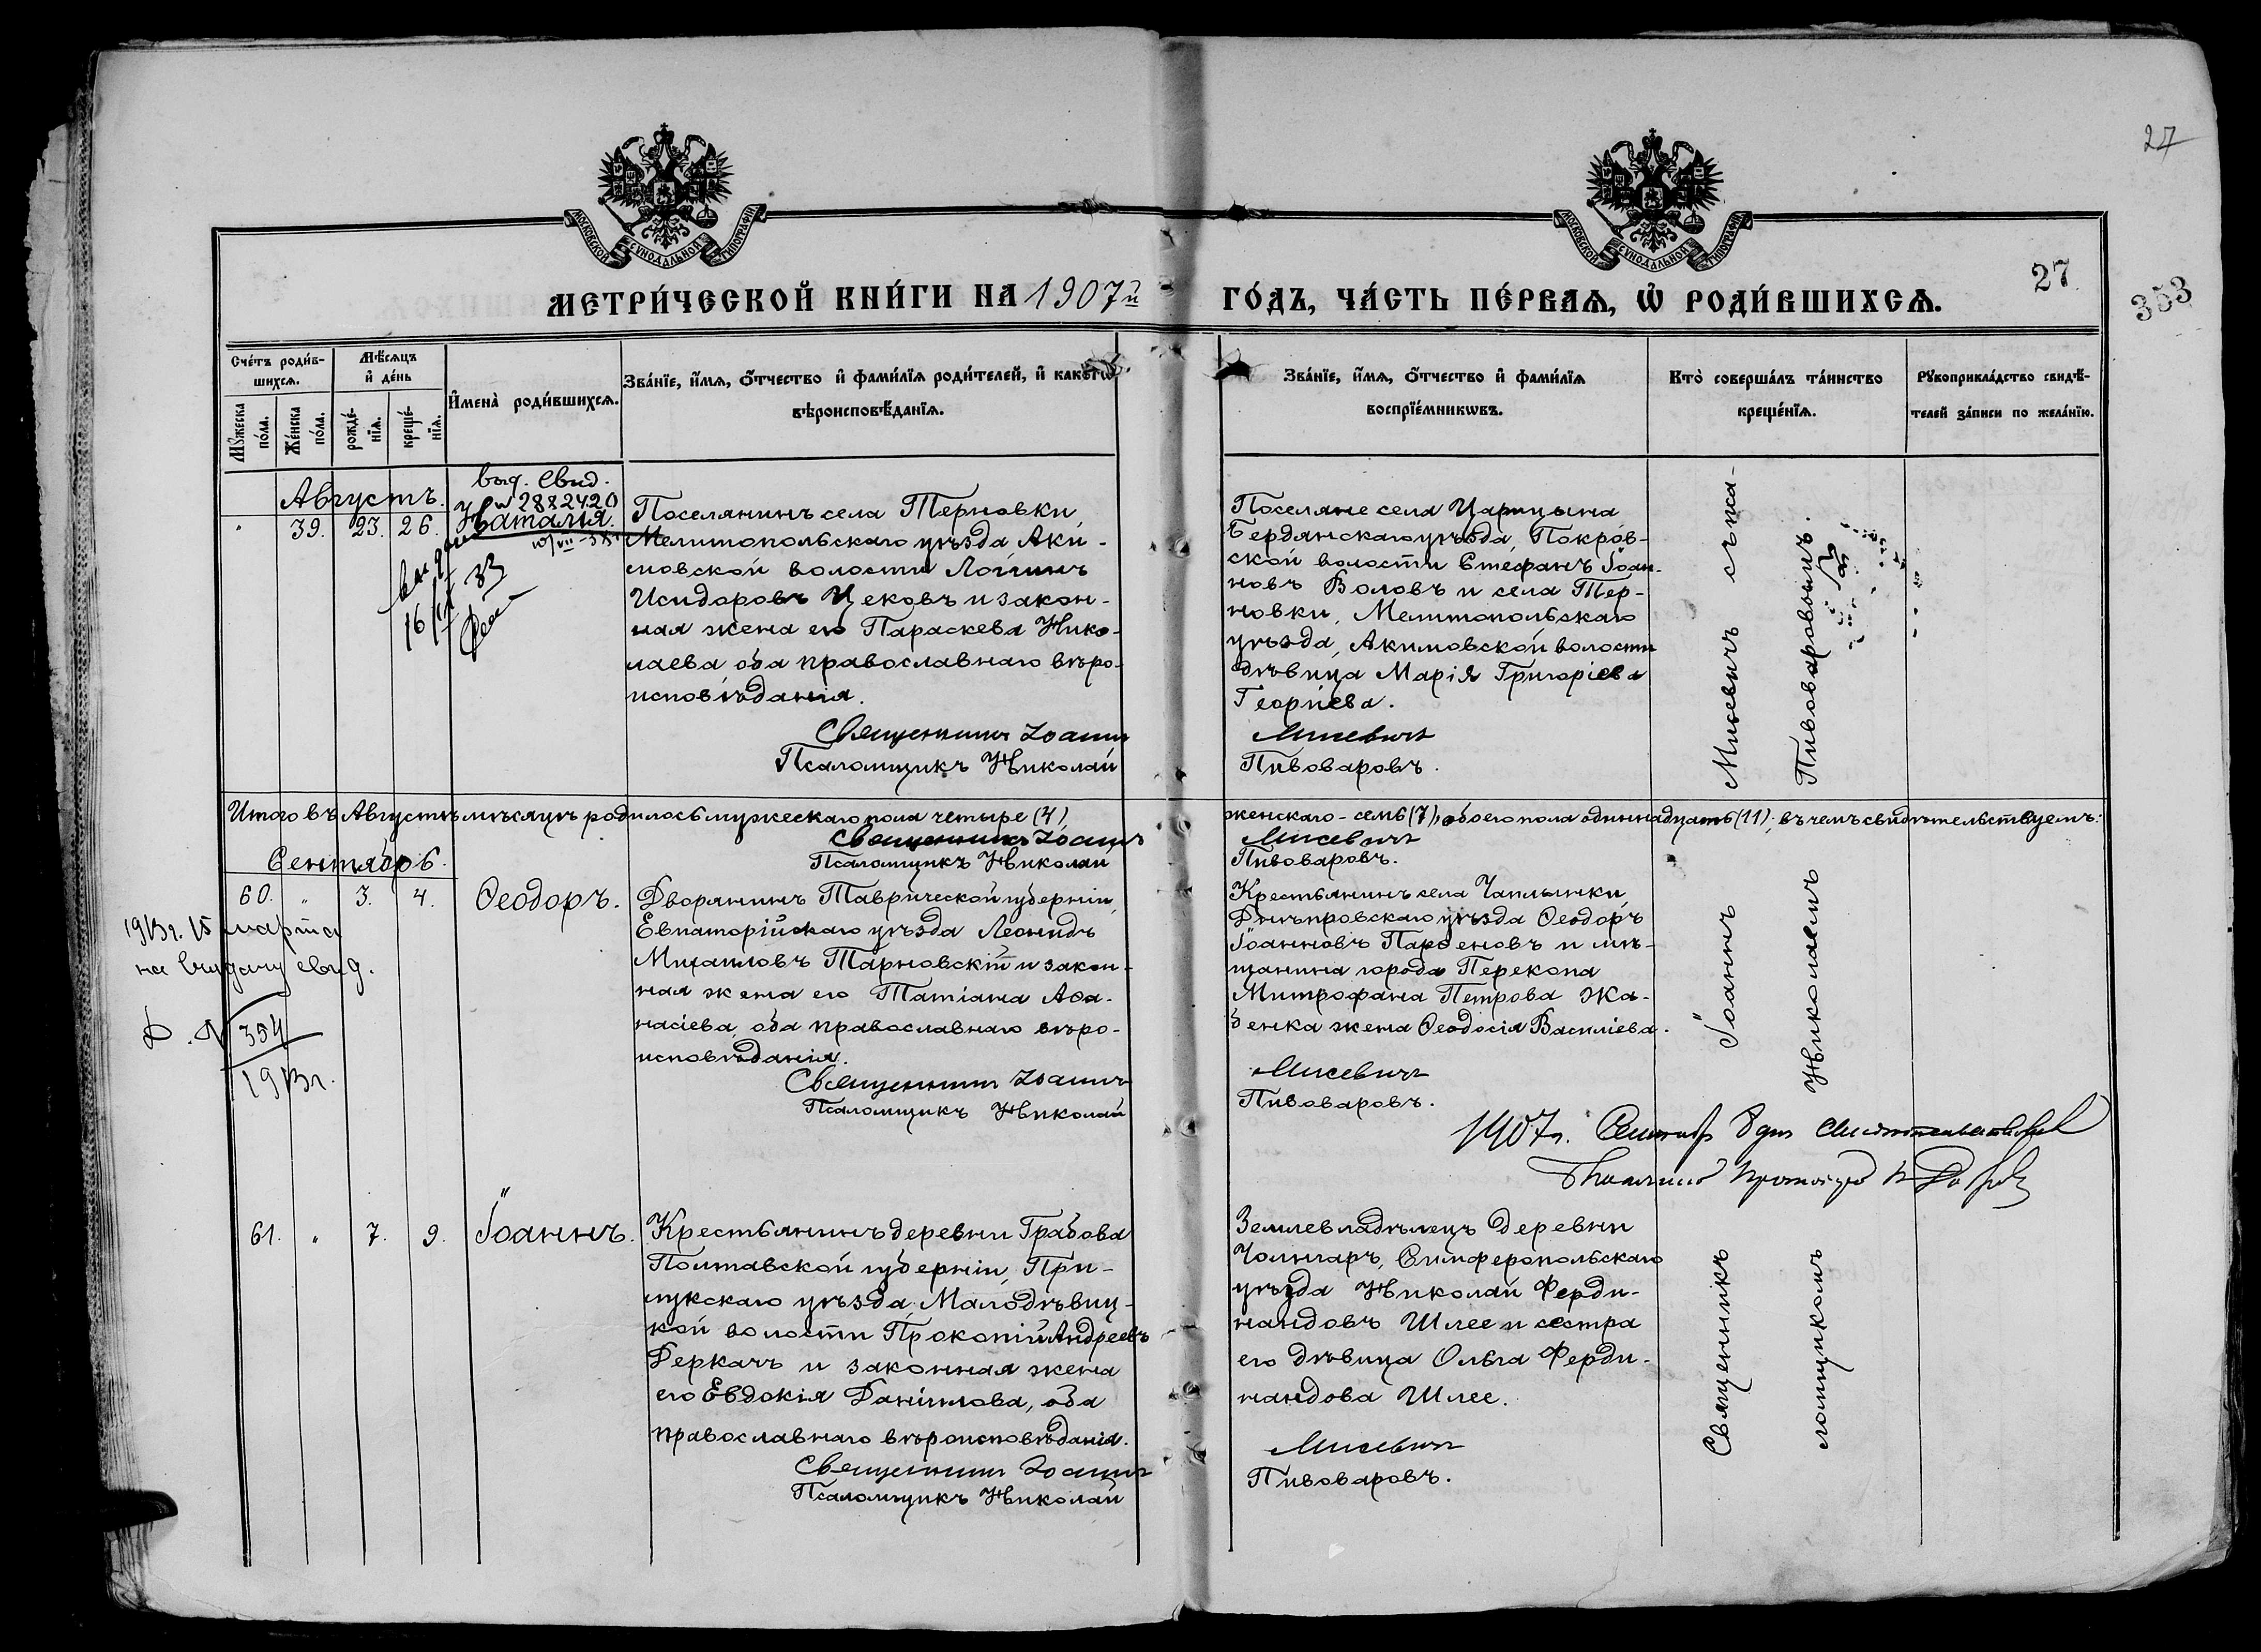 27
МОСКОВСКОЙ СУНОДАЛЬНОЙ ТИПОГРАФІИ
МОСКОВСКОЙ СУНОДАЛЬНОЙ ТИПОГРАФІИ
МЕТРИ́ЧЕСКОЙ КНИ́ГИ НА 1907й ГО́ДЪ, ЧА́СТЬ ПЕ́РВАѦ, Ѡ РОДИ́ВШИХСѦ.
27
353
Сче́тъ роди́в-
шихсѧ.
Мꙋжеска
по́ла.
Же́нска
по́ла.
Мѣ́сѧцъ
и́ де́нь
рожде́-
нїѧ.
креще́-
нїѧ.
И҆мена̀ роди́вшихсѧ.
Зва́нїе, и҆́мѧ, ѻ҆́тчество и҆ фами́лїѧ роди́телей, и҆ како́гѡ
вѣроисповѣ́данїѧ.
Зва́нїе, и҆́мѧ, ѻ҆́тчество и҆ фами́лїѧ
воспрїе́мникѡвъ.
Кто̀ соверша́лъ та́инство
креще́нїѧ.
Рꙋкоприкла́дство свидѣ́-
телей за́писи по жела́нїю.
Августъ.
выд. Свид.
№ 2882420
" 39. 23. 26. Наталія.
16/IX 33
Поселянинъ села Терновки,
Мелитопольскаго уѣзда, Аки-
мовской волости Логгинъ
Исидоровъ Цековъ и закон-
ная жена его Параскева Нико-
лаева оба православнаго вѣро-
исповѣданія.
Священникъ Іоаннъ
Псаломщикъ Николай
Поселяне села Царицына
Бердянскаго уѣзда, Покров-
ской волости Стефанъ Іоан-
новъ Воловъ и села Тер-
новки, Мелитопольскаго
уѣзда, Акимовской волости
дѣвица Марія Григоріева
Георгіева.
Мисевичъ
Пивоваровъ.
Мисевичъ съ пса-
Пивоваровымъ.
Итого въ Августѣ мѣсяцѣ родилось мужескаго пола четыре (4), женскаго - семь (7), обоего пола одиннадцать (11); въ чемъ свидѣтельствуемъ:
Священникъ Іоаннъ Мисевичъ
Псаломщикъ Николай Пивоваровъ.
Сентябрь.
60. " 3. 4. Ѳеодоръ.
1913г. 15 марта
на выдачу свид.
354
1913г.
Дворянинъ Таврической губерніи,
Евпаторійскаго уѣзда Леонидъ
Михаиловъ Тарновскій и закон-
ная жена его Татіана Аѳа-
насіева, оба православнаго вѣро-
исповѣданія.
Священникъ Іоаннъ
Псаломщикъ Николай
Крестьянинъ села Чаплынки,
Днѣпровскаго уѣзда Ѳеодоръ
Іоанновъ Парѳеновъ и мѣ-
щанина города Перекопа
Митрофана Петрова Жа-
бенка жена Ѳеодосія Василіева.
Мисевичъ
Пивоваровъ.
Іоаннъ
Николаемъ
1907г. Сентябр 8 дня
61. " 7. 9. Іоаннъ.
Крестьянинъ деревни Грабова
Полтавской губерніи, При-
лукскаго уѣзда, Малодѣвиц-
кой волости Прокопій Андреевъ
Деркачъ и законная жена
его Евдокія Даніилова, оба
православнаго вѣроисповѣданія.
Священникъ Іоаннъ
Псаломщикъ Николай
Землевладѣлецъ деревни
Чонгаръ, Симферопольскаго
уѣзда Николай Ферди-
нандовъ Шлее и сестра
его дѣвица Ольга Ферди-
нандова Шлее.
Мисевичъ
Пивоваровъ.
Священникъ
ломщикомъ